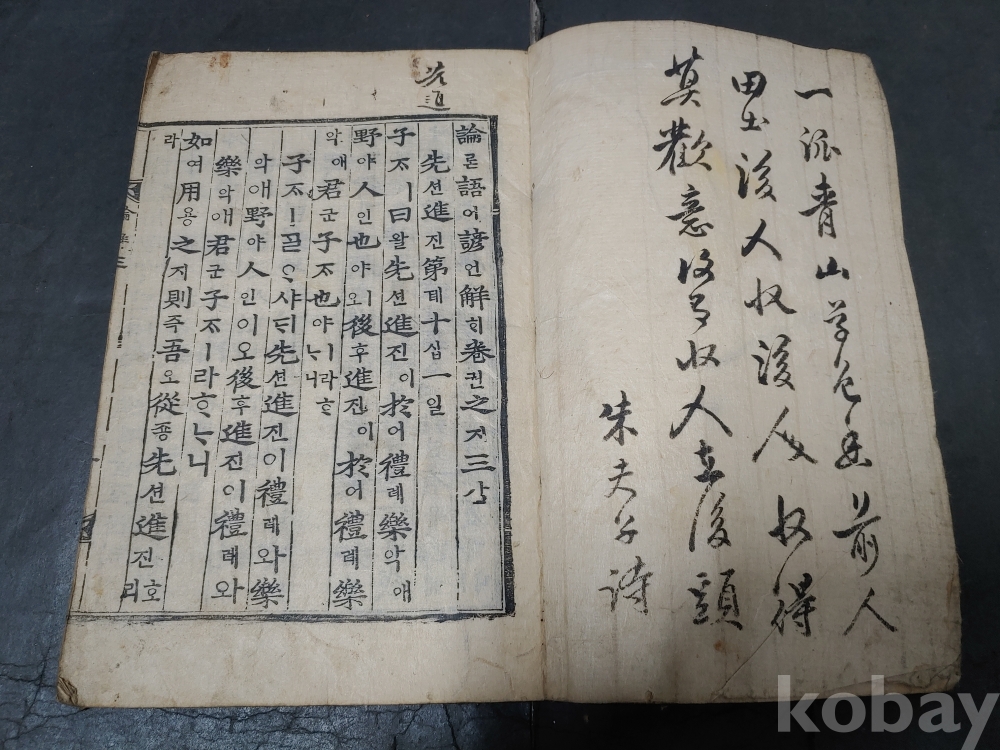 一派青山色幽前人
田土後人收後人收得
莫歡意有收人在後頭
朱夫子詩
論론語어諺언解ᄒᆡ卷권之지三삼
先션進진第뎨十십一일
子ᄌᆞㅣ曰왈先션進진이於어禮례樂악애
野야人인也야ㅣ오後후進진이於어禮례樂
악애君군子ᄌᆞ也야ㅣ라ᄒᆞᄂᆞ니
子ᄌᆞㅣᄀᆞᆯᄋᆞ샤ᄃᆡ先션進진이禮례와樂
악애野야人인이오後후進진이禮례와
樂악애君군子ᄌᆞㅣ라ᄒᆞᄂᆞ니
如여用용之지則즉吾오從죵先션進진호리
라
kobay